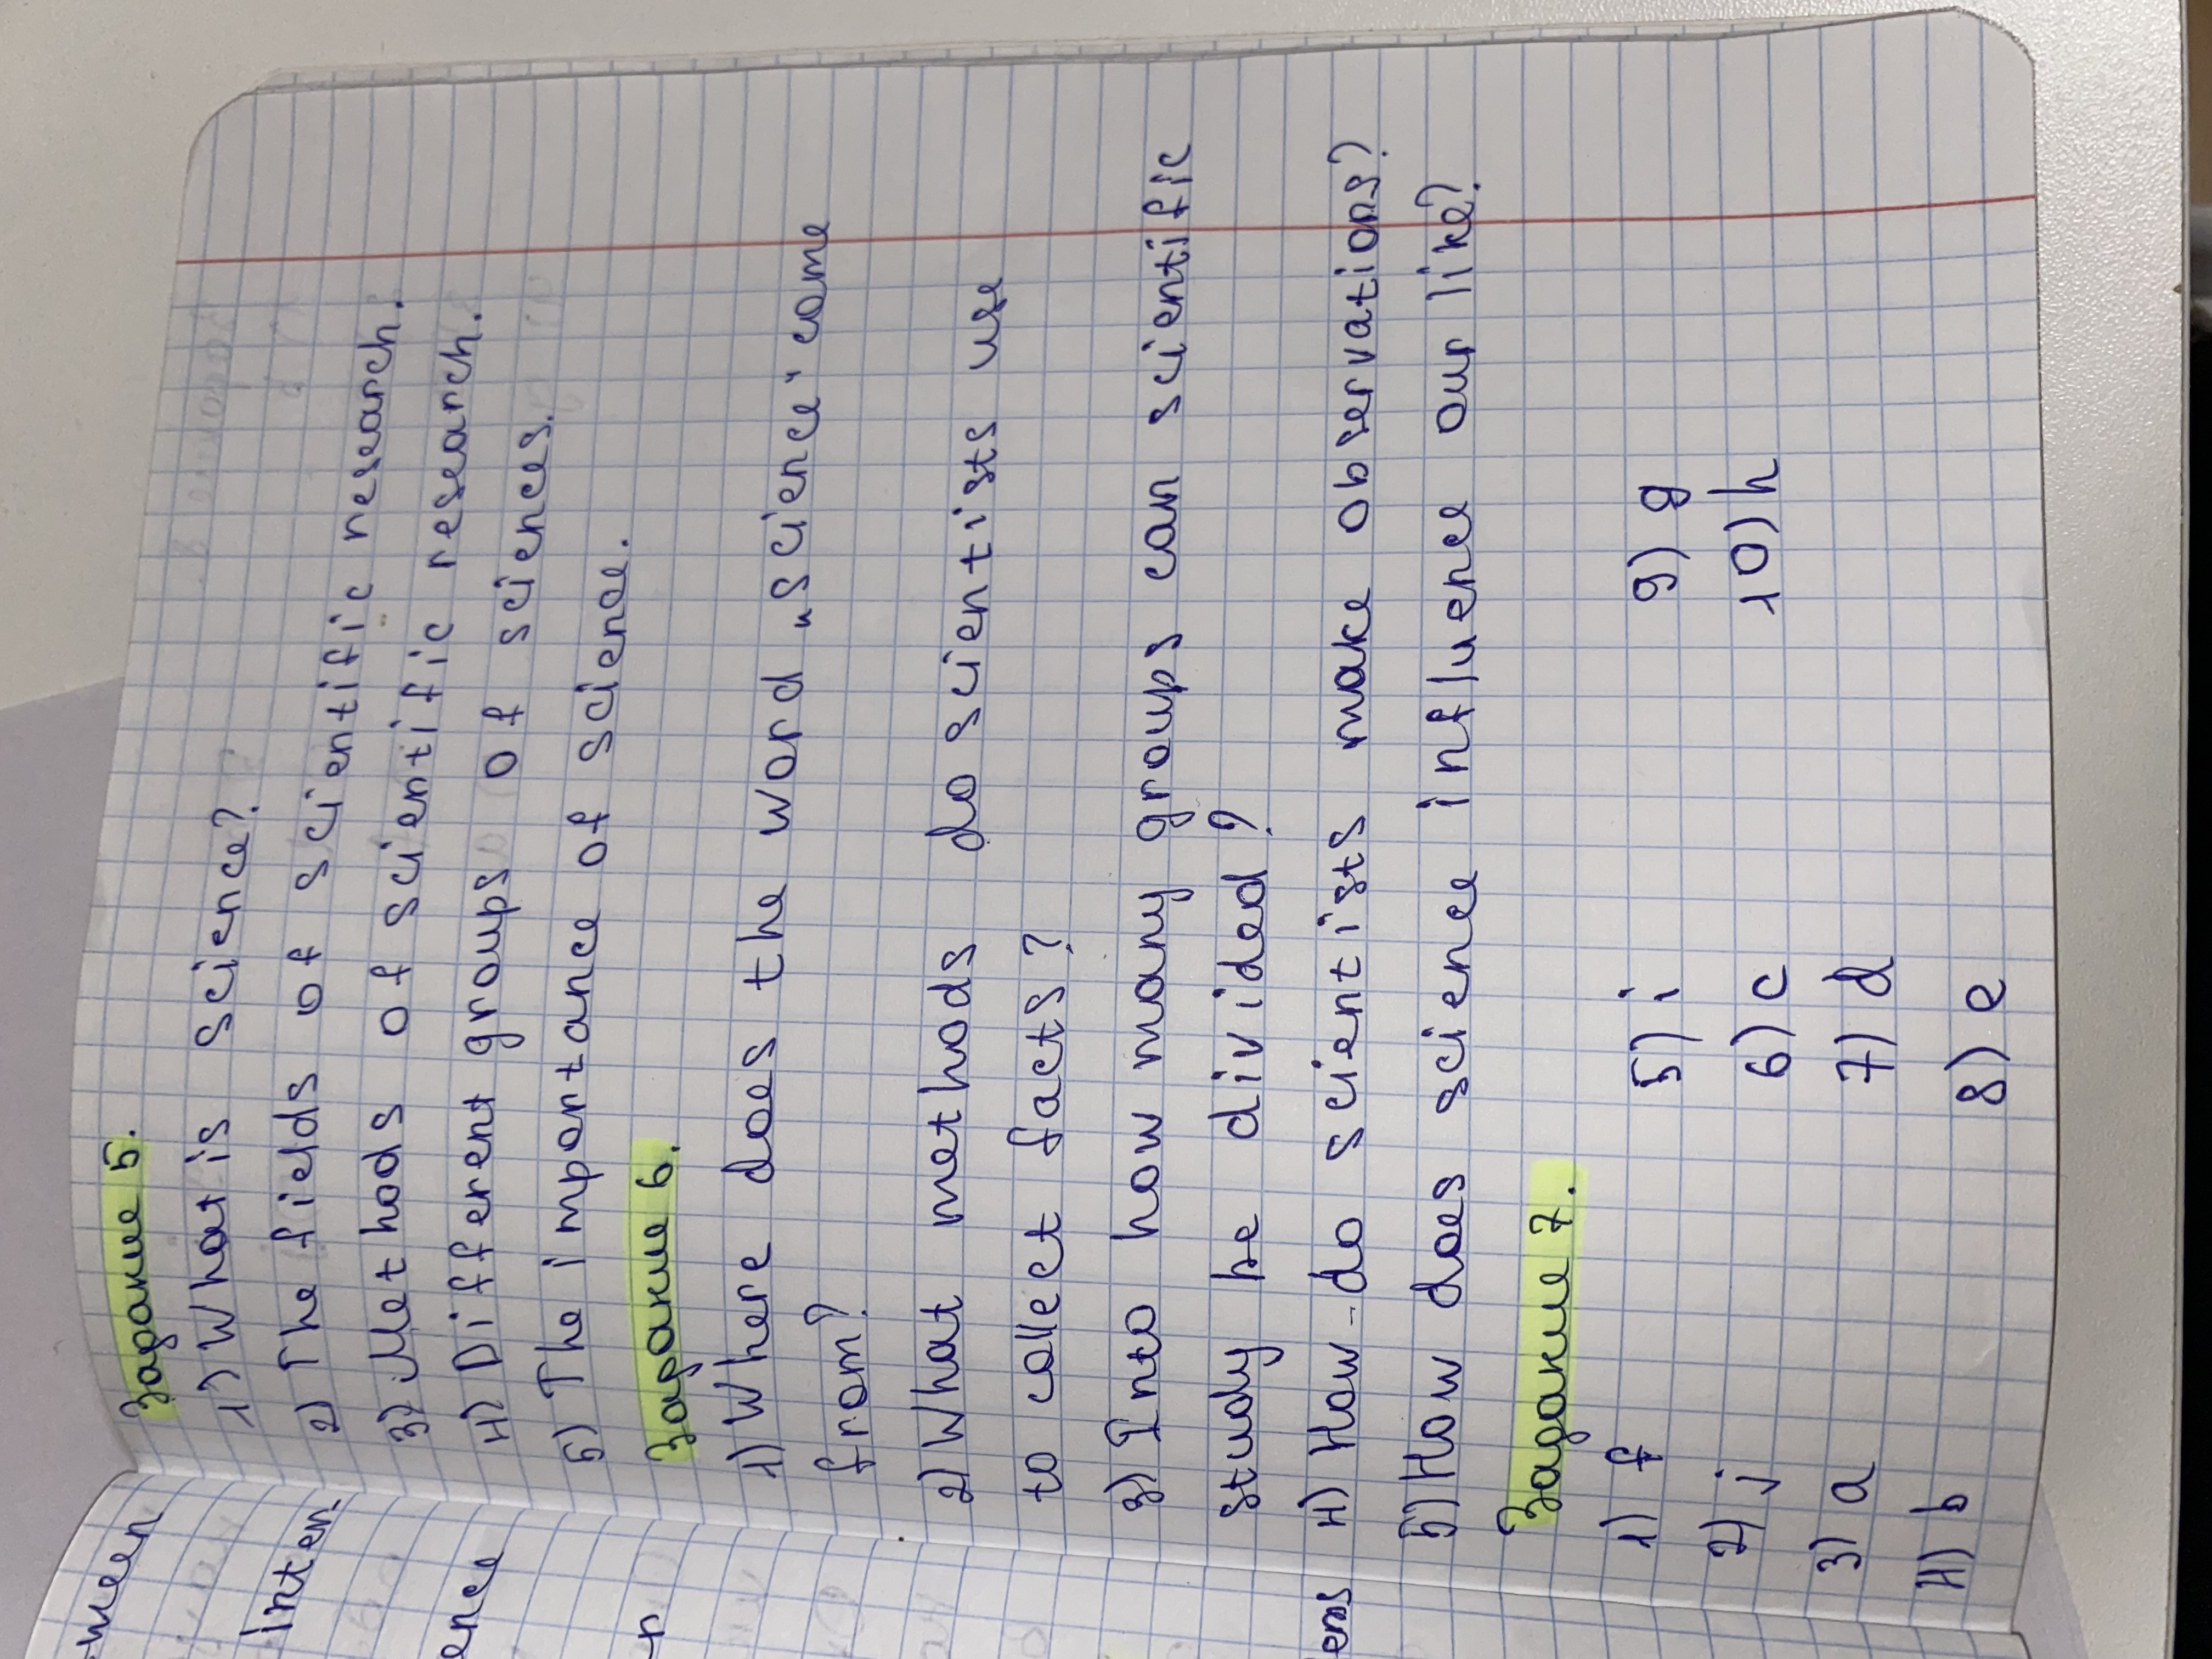 -ween
inten-
ence
er
ens
Задание 5.
1) What is science?
2) The fields of scientific research.
3) Methods of scientific research.
4) Different groups of sciences.
5) The importance of science.
Задание 6.
1) Where does the word "science" come
from?
2) What methods do scientists use
to collect facts?
3) Into how many groups can scientific
study be divided?
4) How do scientists make observations?
5) How does science influence our like?
Задание 7.
1) f
2) j
3) a
4) b
5) i
6) c
7) d
8) e
9) g
10) h